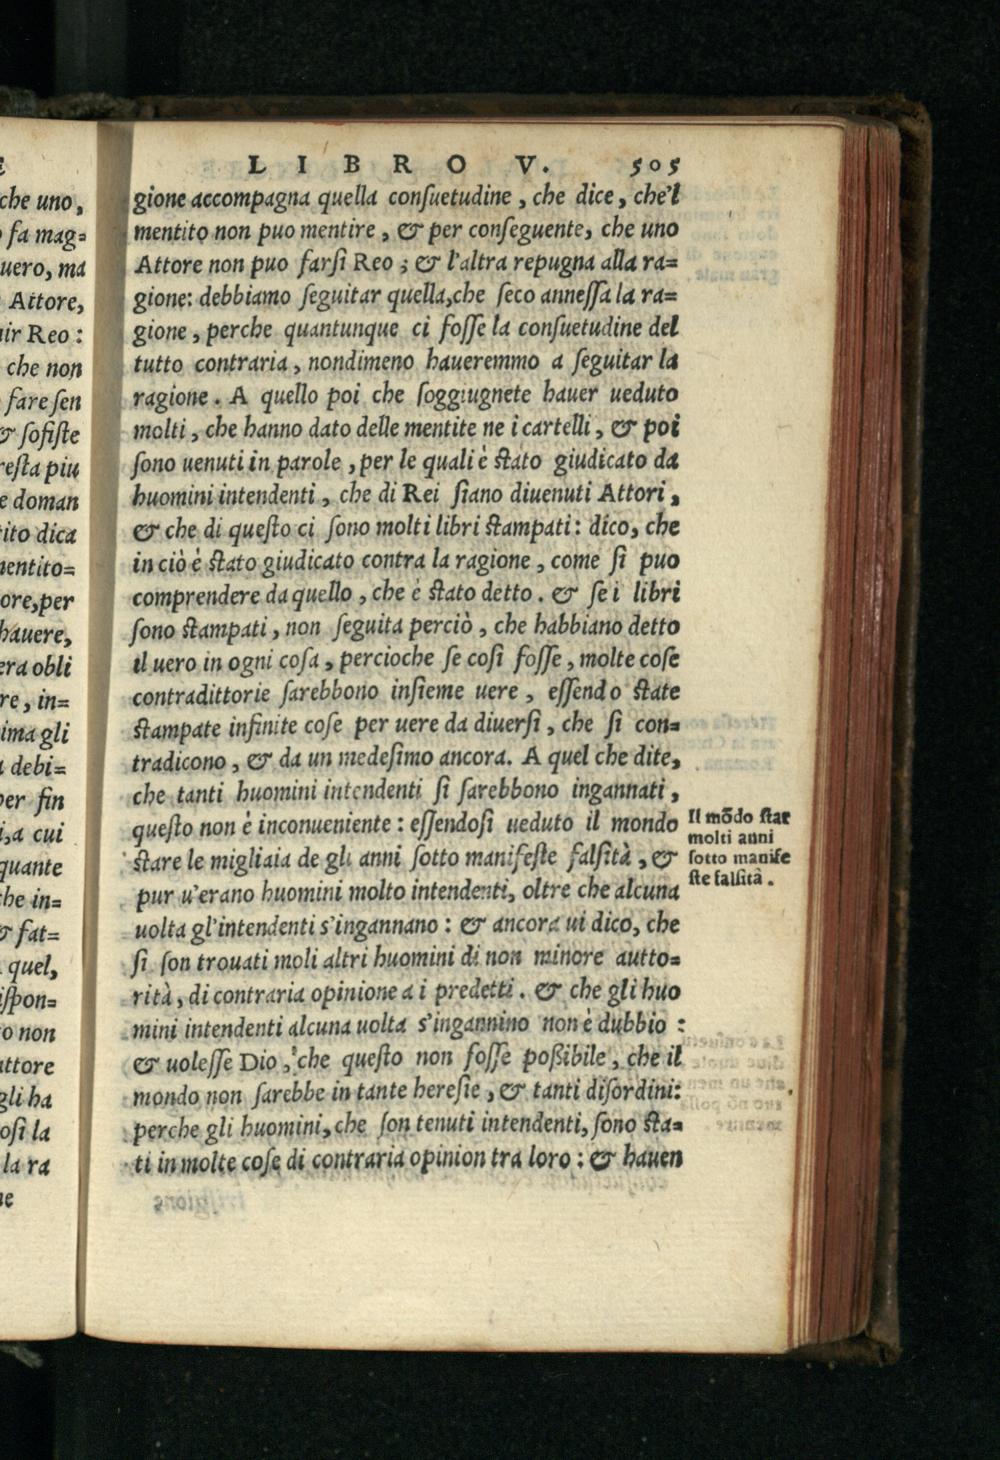 LIBRO V. 505
gione accompagna quella conſuetudine, che dice, che'l
mentito non puo mentire, & per conſeguente, che uno
Attore non puo farſi Reo; & l'altra repugna alla ra=
gione: debbiamo ſeguitar quella, che ſeco anneſſa la ra=
gione, perche quantunque ci foſſe la conſuetudine del
tutto contraria, nondimeno haueremmo a ſeguitar la
ragione. A quello poi che ſoggiugnete hauer ueduto
molti, che hanno dato delle mentite ne i cartelli, & poi
ſono uenuti in parole, per le quali è ſtato giudicato da
huomini intendenti, che di Rei ſiano diuenuti Attori,
& che di queſto ci ſono molti libri ſtampati: dico, che
in ciò è ſtato giudicato contra la ragione, come ſi puo
comprendere da quello, che è ſtato detto. & ſe i libri
ſono ſtampati, non ſeguita perciò, che habbiano detto
il uero in ogni coſa, percioche ſe coſi foſſe, molte coſe
contradittorie ſarebbono inſieme uere, eſſendo ſtate
ſtampate infinite coſe per uere da diuerſi, che ſi con=
tradicono, & da un medeſimo ancora. A quel che dite,
che tanti huomini intendenti ſi ſarebbono ingannati,
queſto non è inconueniente: eſſendoſi ueduto il mondo
ſtare le migliaia de gli anni ſotto manifeſte falſità, &
pur u'erano huomini molto intendenti, oltre che alcuna
uolta gl'intendenti s'ingannano: & ancora ui dico, che
ſi ſon trouati moli altri huomini di non minore autto=
rità, di contraria opinione a i predetti. & che gli huo
mini intendenti alcuna uolta s'ingannino non è dubbio:
& uoleſſe Dio, che queſto non foſſe poßibile, che il
mondo non ſarebbe in tante hereſie, & tanti diſordini:
perche gli huomini, che ſon tenuti intendenti, ſono ſta=
ti in molte coſe di contraria opinion tra loro: & hauen
Il mõdo ſtar
molti anni
ſotto manife
ſte falſità.
che uno,
fa mag=
uero, ma
Attore,
ir Reo:
che non
fare ſen
& ſofiſte
reſta piu
e doman
tito dica
mentito=
ore, per
hauere,
era obli
re, in=
ima gli
debi=
per fin
i, a cui
quante
che in=
& fat=
quel,
iſpon=
o non
attore
gli ha
oſi la
la ra
ne